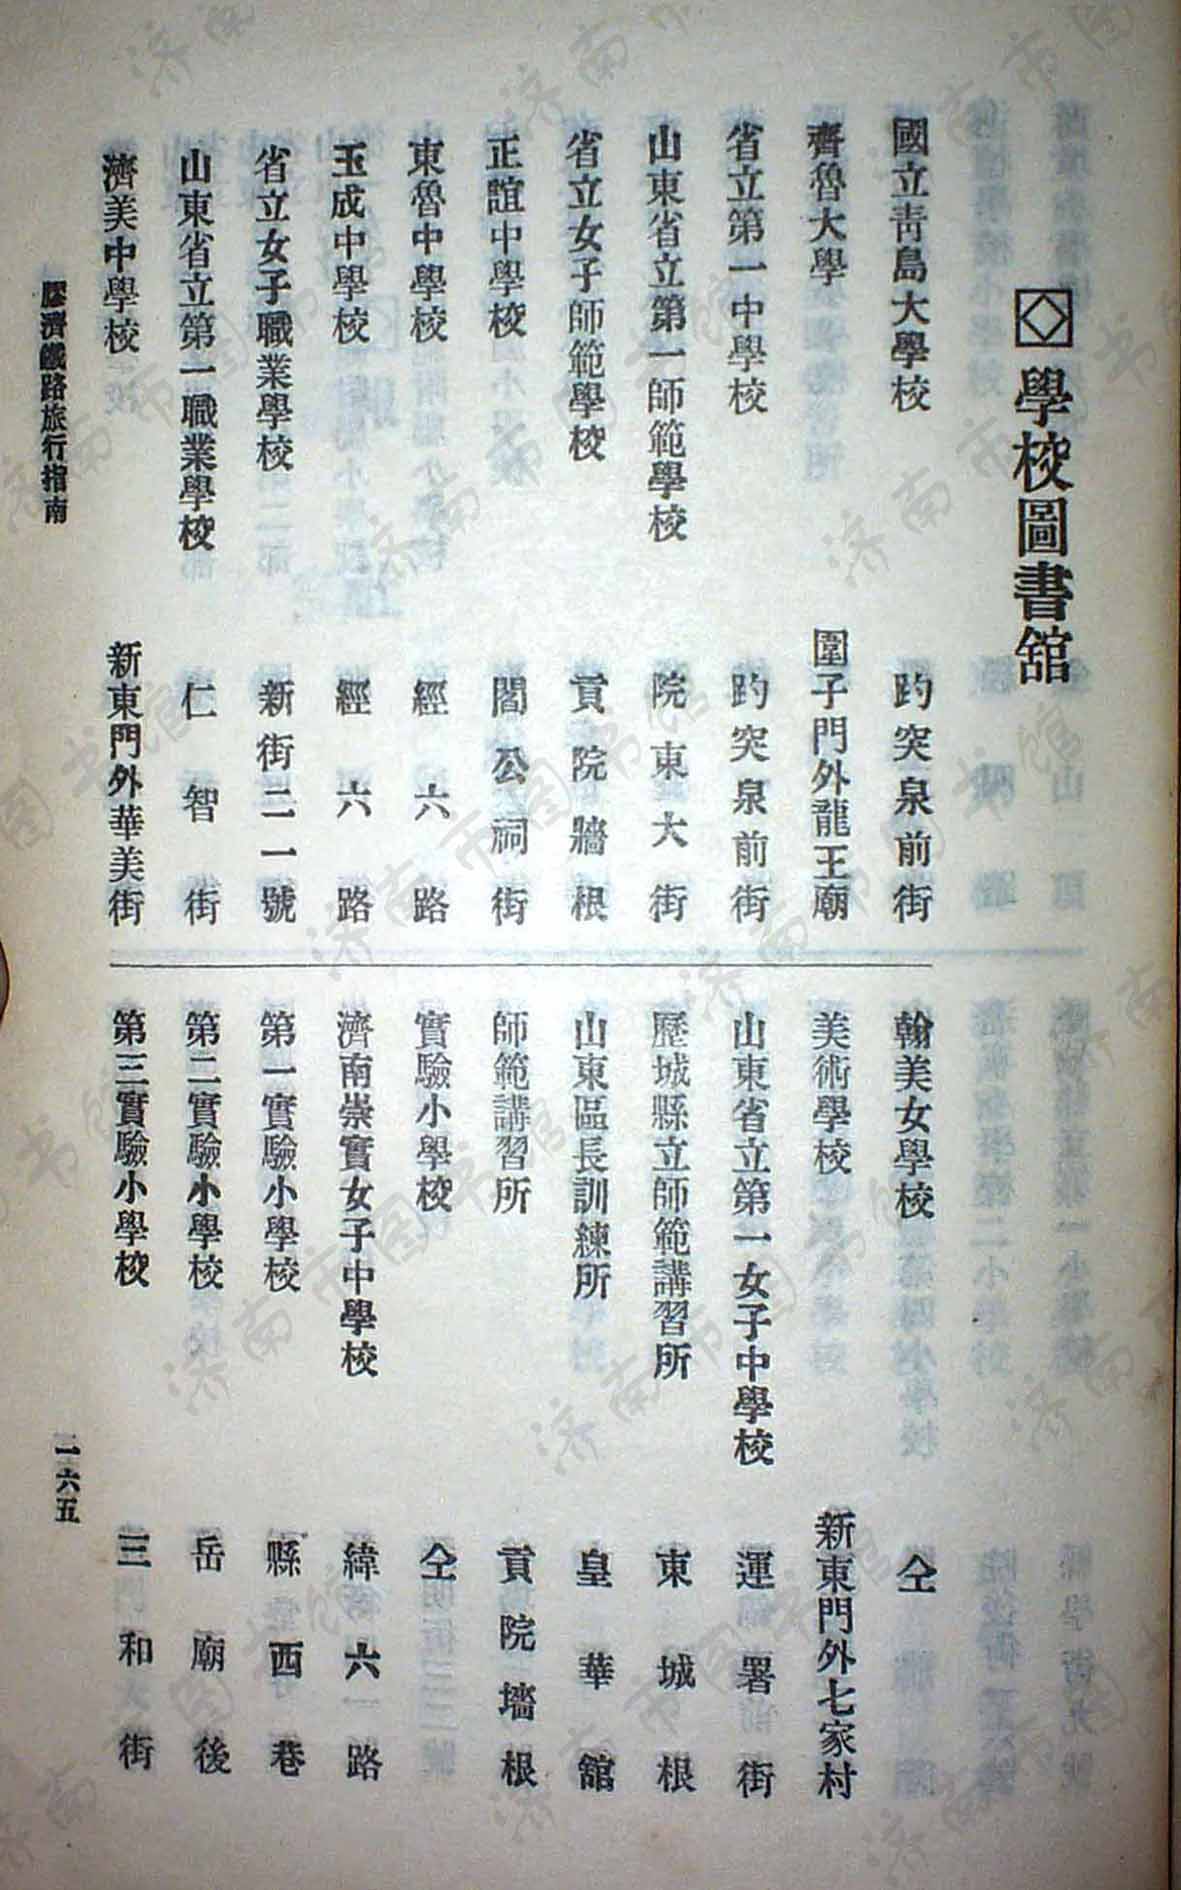 學校圖書舘
國立靑島大學校 趵突泉前街
齊魯大學 圍子門外龍王廟
省立第一中學校 趵突泉前街
山東省立第一師範學校 院東大街
省立女子師範學校 貢院牆根
正誼中學校 閻公祠街
東魯中學校 經六路
玉成中學校 經六路
省立女子職業學校 新街二一號
山東省立第一職業學校 仁智街
濟美中學校 新東門外華美街
翰美女學校 仝
美術學校 新東門外七家村
山東省立第一女子中學校 運署街
歷城縣立師範講習所 東城根
山東區長訓練所 皇華舘
師範講習所 貢院墻根
實驗小學校 仝
濟南崇實女子中學校 緯六路
第一實驗小學校 縣西巷
第二實驗小學校 岳廟後
第三實驗小學校 三和街
膠濟鐵路旅行指南
一六五
济南市图书馆